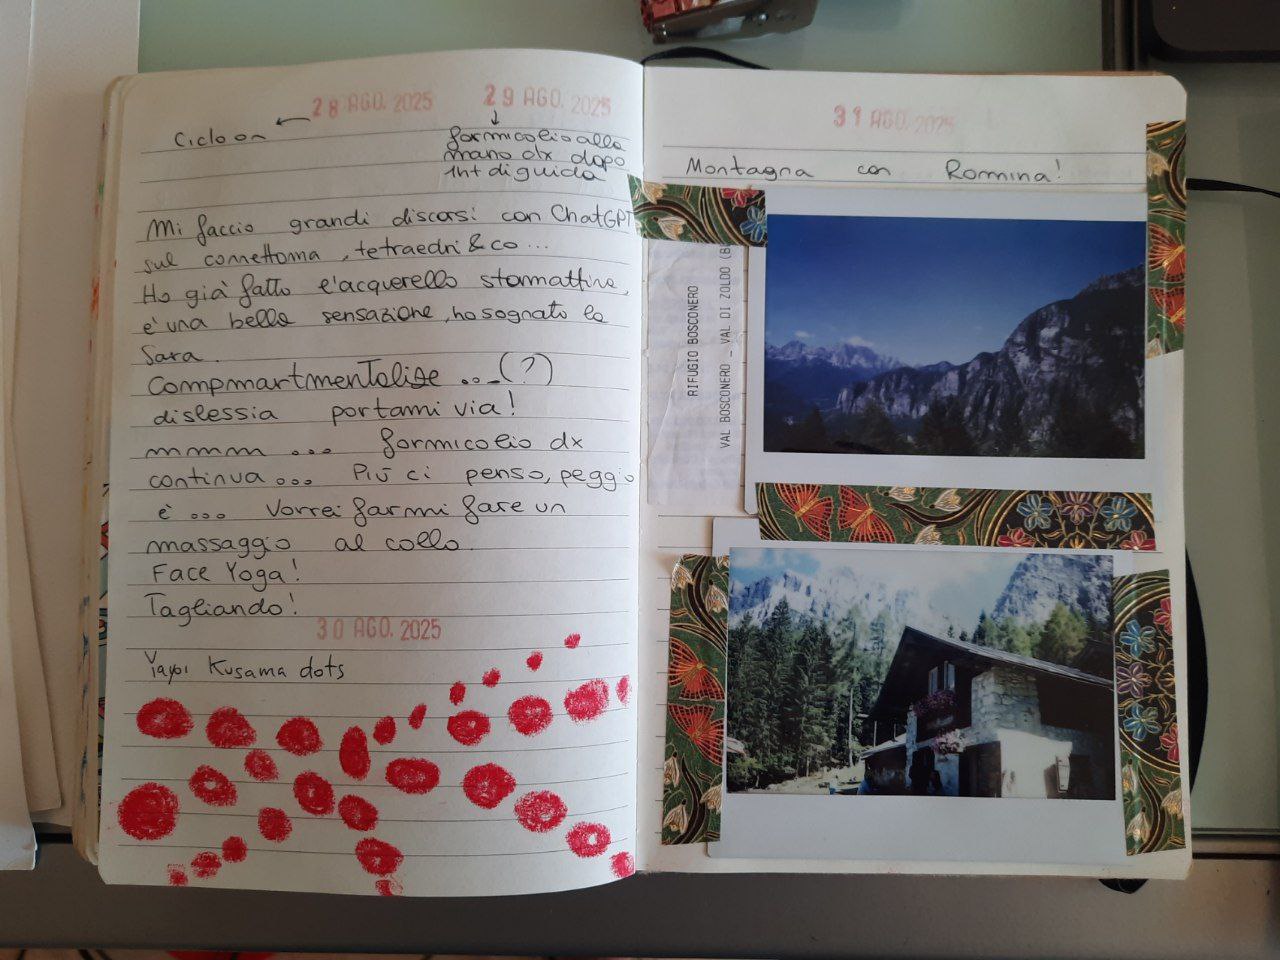 28 AGO. 2025
29 AGO. 2025
Ciclo on ←
↓
formicolio alla
mano dx dopo
1h di guida
Mi faccio grandi discorsi con ChatGPT
sul connettoma, tetraedri & co...
Ho già fatto l'acquerello stamattina,
è una bella sensazione, ho sognato la
Sara.
Compmartmentalise ... (?)
dislessia portami via!
mmm ... formicolio dx
continua... Più ci penso, peggio
è ... Vorrei farmi fare un
massaggio al collo.
Face Yoga!
Tagliando!
30 AGO. 2025
Yayoi Kusama dots
31 AGO. 2025
Montagna con Romina!
RIFUGIO BOSCONERO
VAL BOSCONERO - VAL DI ZOLDO (B